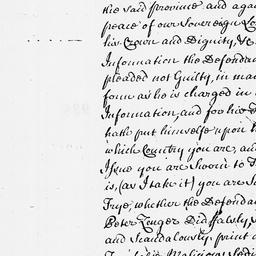 the said province and aga
peace of our Sovereign Lo
his Crown and Dignity, &c.
Information the Defenda
pleaded not Guilty, in ma
form as he is charged in
Information, and for his
hath put himselfe upon
which Country you are, and
Issue you are Sworn to
is, (as I take it) you are S
Trye, whether the Defenda
Peter Zenger Did falsely,
and Scandalously, print
Malicious Sedi